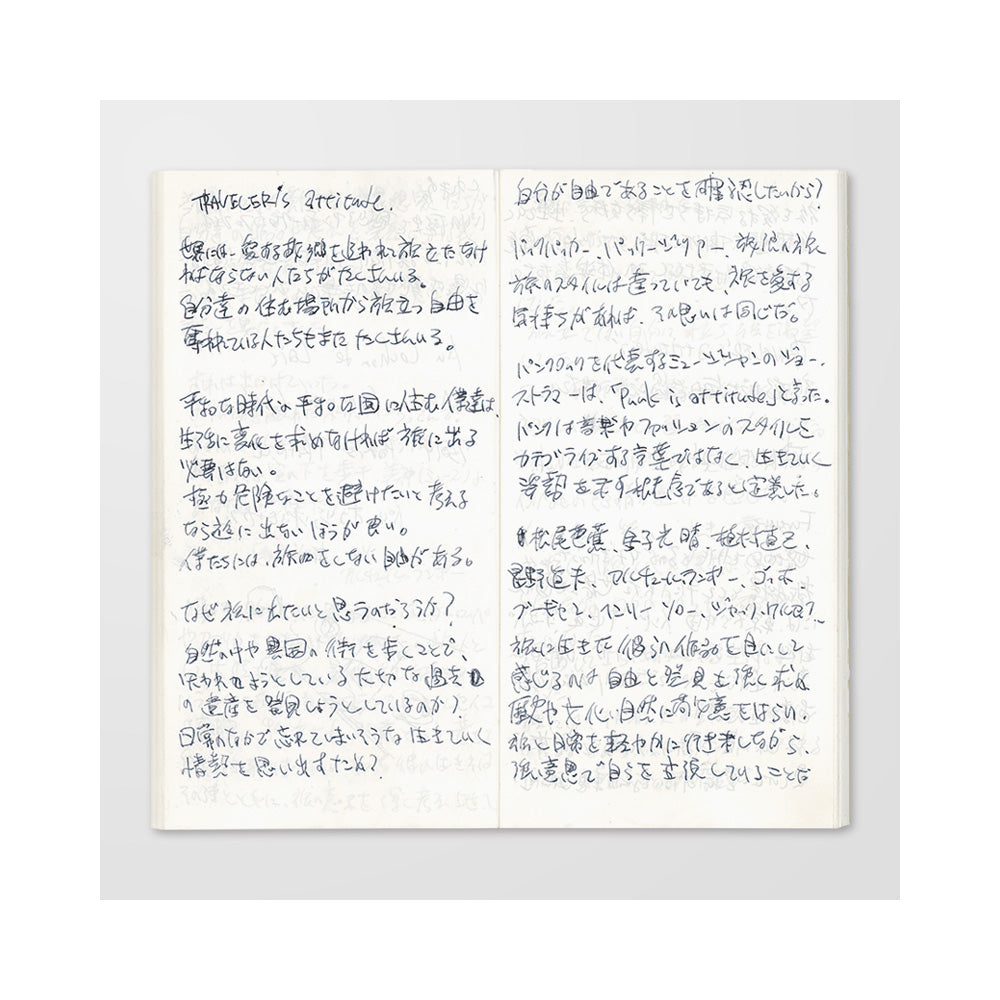 TRAVELER's attitude.
世界には、愛する故郷を追われて旅立たなけ
ればならない人たちがたくさんいる。
自分達の住む場所から旅立つ自由を
奪われている人たちもまたたくさんいる。
平和な時代の平和な国に住む僕達は、
生活に変化を求めなければ旅に出る
必要はない。
極力危険なことを避けたいと考える
なら旅に出ないほうが良い。
僕たちには、旅をしない自由がある。
なぜ旅に出たいと思うのだろうか?
自然の中や異国の街を歩くことで、
失われようとしている大切な過去
の遺産を発見しようとしているのか?
日常のなかで忘れてしまいそうな生きていく
情熱を思い出すため?
自分が自由であることを確認したいから?
バックパッカー、パッケージツアー、放浪の旅
旅のスタイルは違っていても、旅を愛する
気持ちがあれば、その思いは同じだ。
パンクロックを代表するミュージシャンのジョー・
ストラマーは、「Punk is attitude」と言った。
パンクは音楽やファッションのスタイルを
カテゴライズする言葉ではなく、生きていく
姿勢を示す概念であると定義した。
松尾芭蕉、金子光晴、植村直己、
星野道夫、アルチュール・ランボー、ゴッホ、
ゴーギャン、ヘンリー・ソロー、ジャック・ケルアック…
旅に生きた彼らの作品を目にして
感じるのは自由と発見を強く求め
歴史や文化、自然に敬意をはらい、
旅と日常を軽やかに行き来しながら、
強い意思で自らを主張していることだ